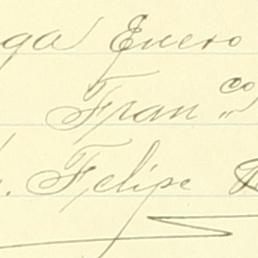 ga Enero
Fran co
Felipe